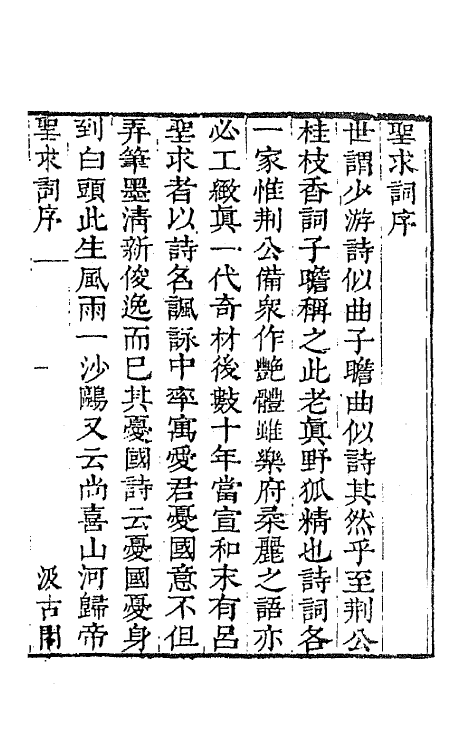 聖求詞序
世謂少游詩似曲子瞻曲似詩其然乎至荆公
桂枝香詞子瞻稱之此老眞野狐精也詩詞各
一家惟荆公備衆作艶體雖樂府柔麗之語亦
必工緻眞一代奇材後數十年當宣和末有呂
聖求者以詩名諷詠中率寓愛君憂國意不但
弄筆墨淸新俊逸而已其憂國詩云憂國憂身
到白頭此生風雨一沙鷗又云尚喜山河歸帝
聖求詞序 一 汲古閣